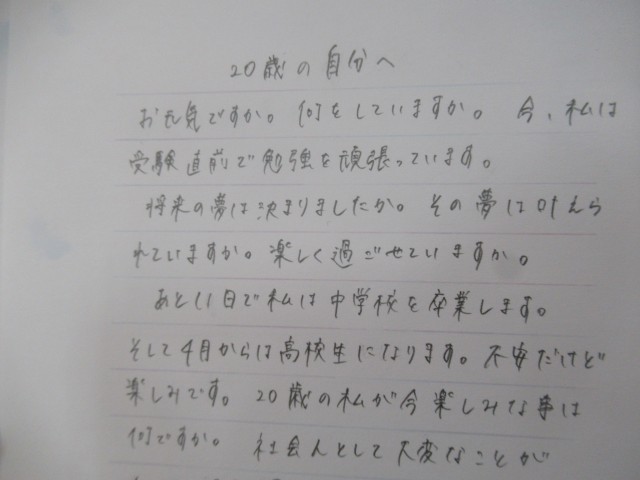 20歳の自分へ
お元気ですか。何をしていますか。今、私は
受験直前で勉強を頑張っています。
将来の夢は決まりましたか。その夢は叶えら
れていますか。楽しく過ごせていますか。
あと11日で私は中学校を卒業します。
そして4月からは高校生になります。不安だけど
楽しみです。20歳の私が今楽しみな事は
何ですか。社会人として大変なことが